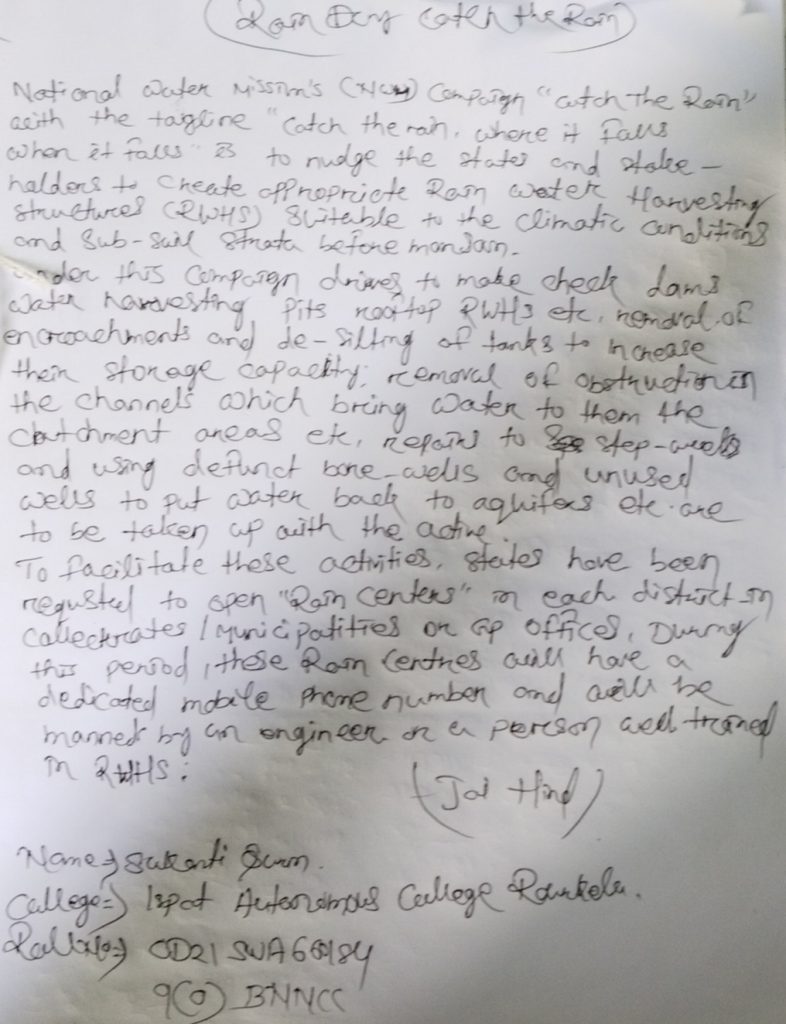 Rain Day Catch the Rain
National Water Mission's (NWM) Campaign "catch The Rain"
with the tagline "catch the rain, where it falls
when it falls" is to nudge the states and stake-
holders to create appropriate Rain water Harvesting
structures (RWHS) suitable to the climatic conditions
and sub-soil strata before monsoon.
under this campaign drives to make check dams
water harvesting pits rooftop RWHS etc, removal of
encroachments and de-silting of tanks to increase
their storage capacity; removal of obstruction in
the channels which bring water to them the
catchment areas etc, repairs to step-wells
and using defunct bore-wells and unused
wells to put water back to aquifers etc are
to be taken up with the active.
To facilitate these activities, states have been
requsted to open "Rain centers" in each district in
collectorates / Municipalities or GP offices, During
this period, these Rain Centres will have a
dedicated mobile phone number and will be
manned by an engineer or a person well trained
in RWHS:
(Jai Hind)
Name => Sukanti
College => Ispat Autonomous College Rourkela.
9(O) BNNCC